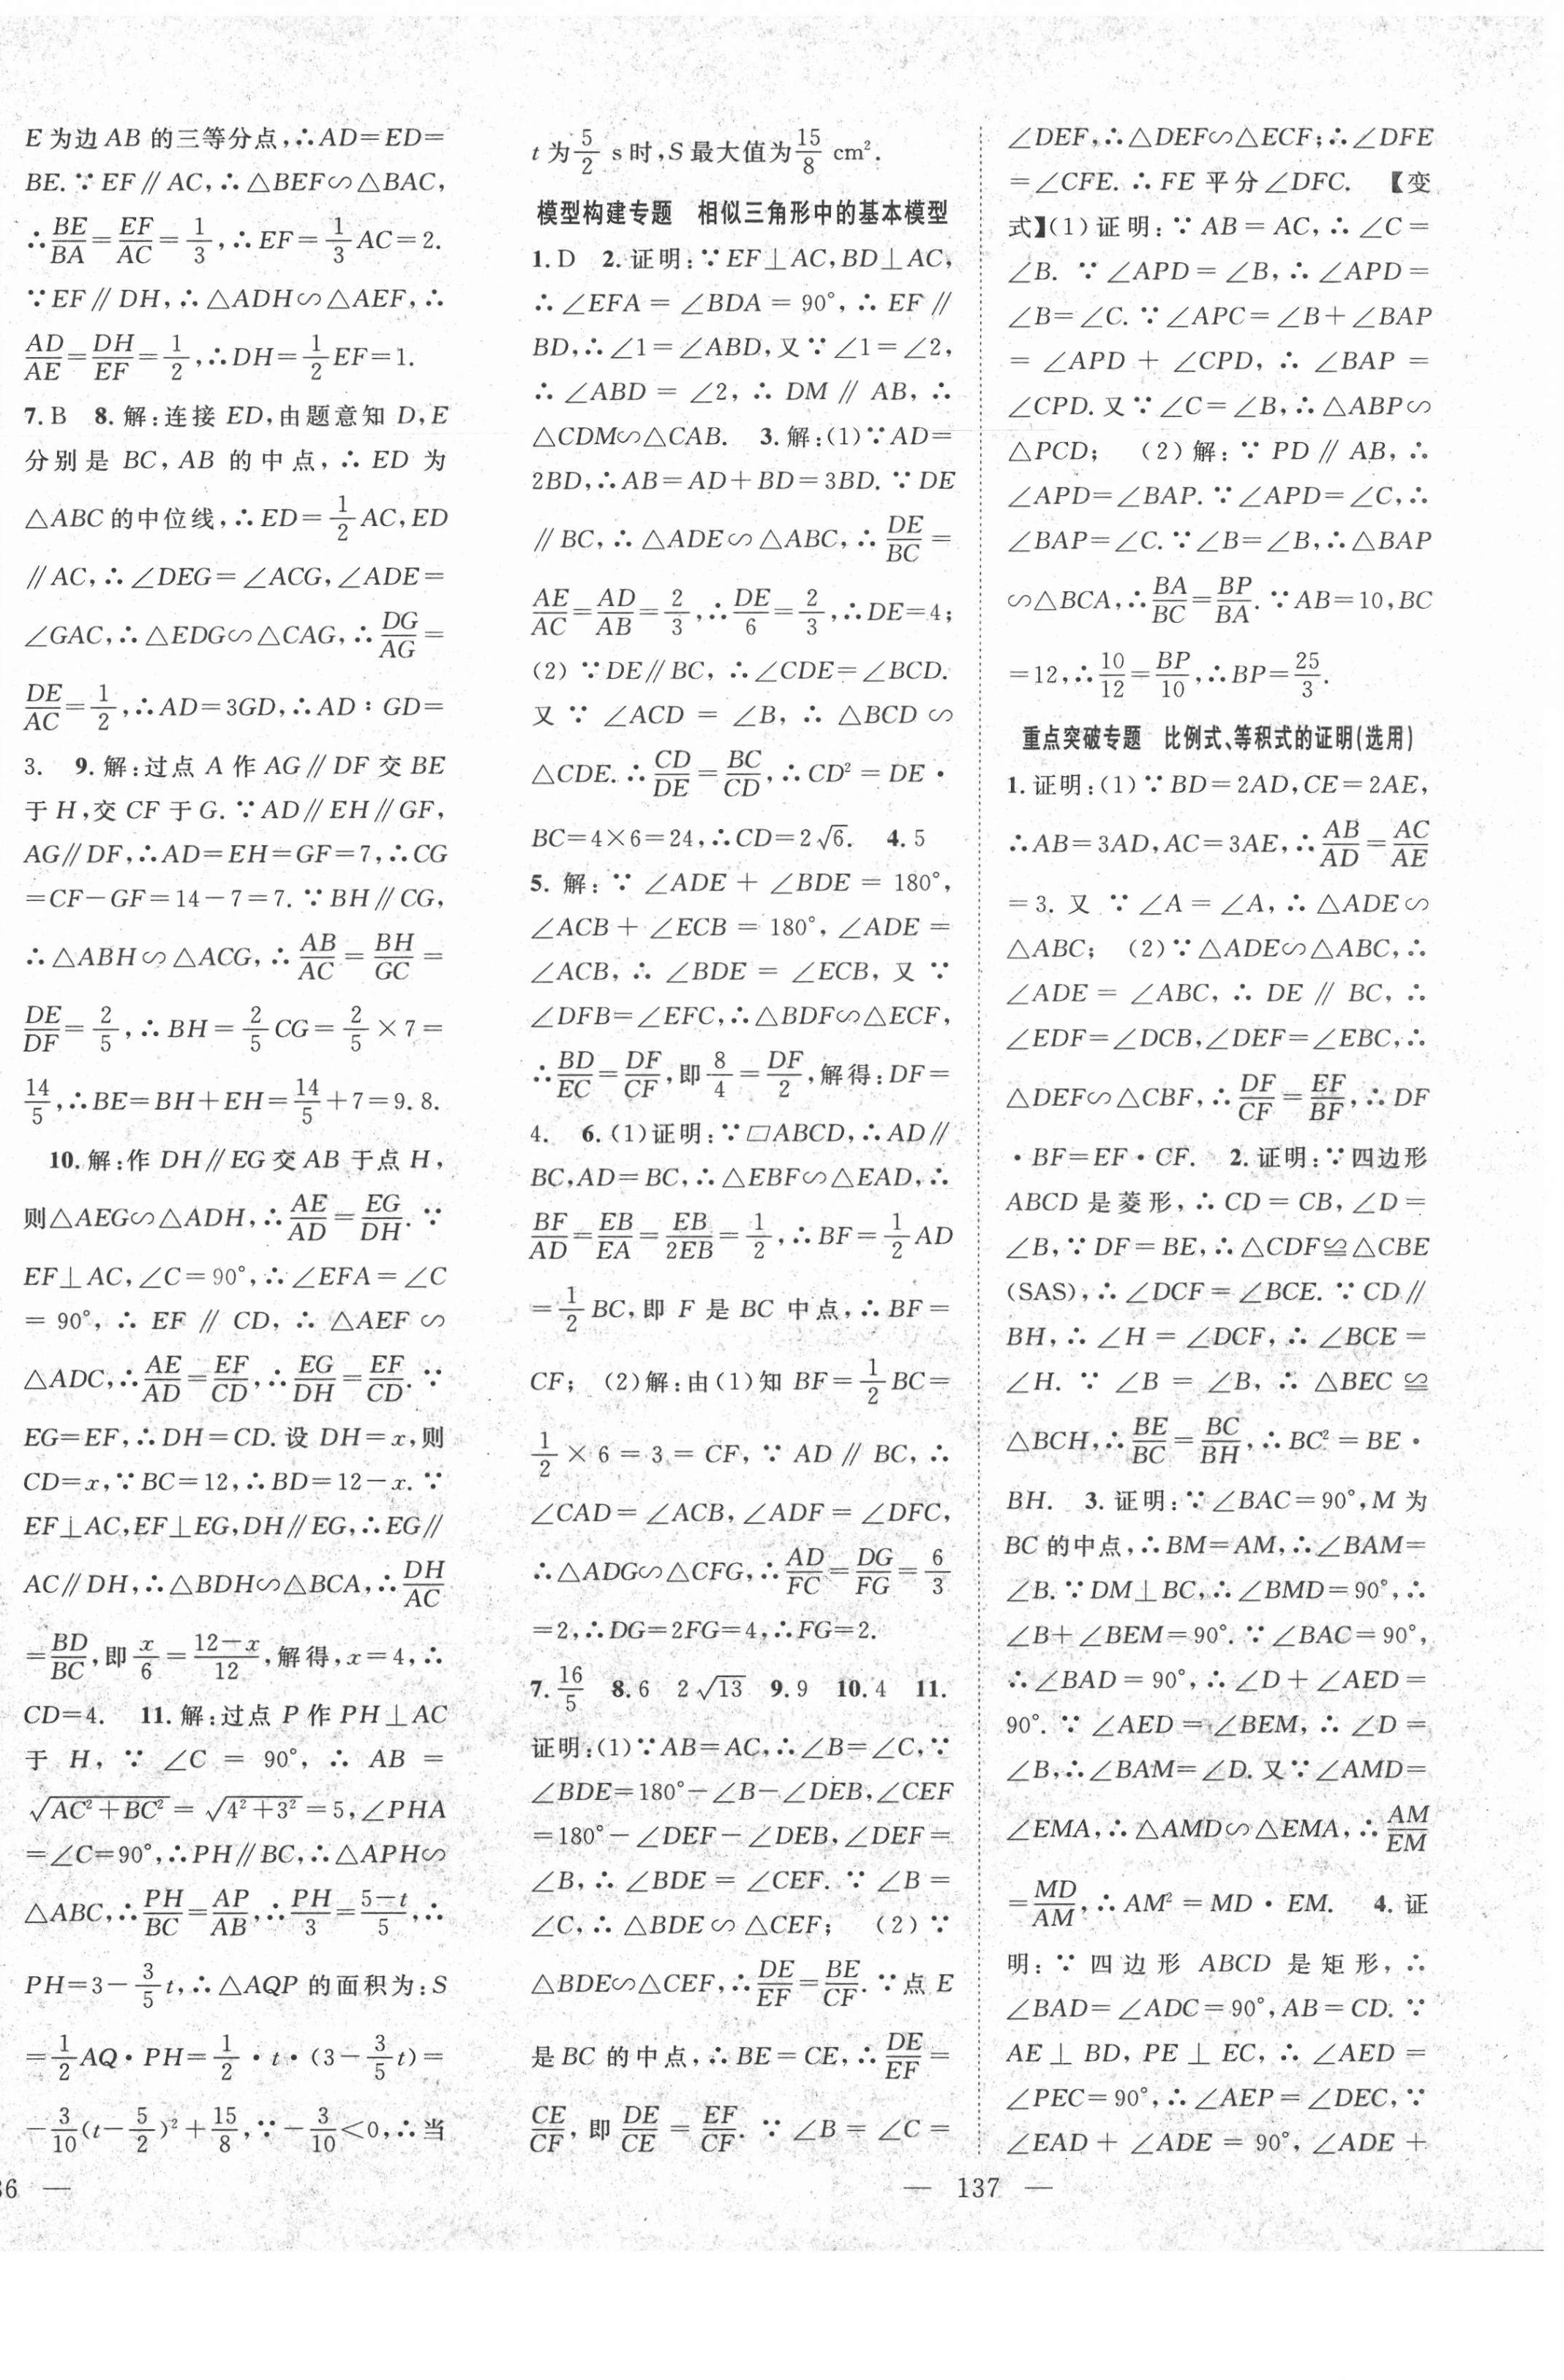 E 为边 AB 的三等分点,∴AD=ED=
BE.∵EF∥AC,∴△BEF∽△BAC,
∴BE/BA=EF/AC=1/3,∴EF=1/3AC=2.
∵EF∥DH,∴△ADH∽△AEF,∴
AD/AE=DH/EF=1/2,∴DH=1/2EF=1.
7.B 8.解:连接 ED,由题意知 D,E
分别是 BC,AB 的中点,∴ED 为
△ABC的中位线,∴ED=1/2AC,ED
∥AC,∴∠DEG=∠ACG,∠ADE=
∠GAC,∴△EDG∽△CAG,∴DG/AG=
DE/AC=1/2,∴AD=3GD,∴AD:GD=
3. 9.解:过点 A 作 AG∥DF 交 BE
于 H,交 CF 于 G.∵AD∥EH∥GF,
AG∥DF,∴AD=EH=GF=7,∴CG
=CF-GF=14-7=7.∵BH∥CG,
∴△ABH∽△ACG,∴AB/AC=BH/GC=
DE/DF=2/5,∴BH=2/5CG=2/5×7=
14/5,∴BE=BH+EH=14/5+7=9.8.
10.解:作 DH∥EG交 AB 于点 H,
则△AEG∽△ADH,∴AE/AD=EG/DH.∵
EF⊥AC,∠C=90°,∴∠EFA=∠C
=90°,∴EF∥CD,∴△AEF∽
△ADC,∴AE/AD=EF/CD,∴EG/DH=EF/CD.∵
EG=EF,∴DH=CD.设 DH=x,则
CD=x,∵BC=12,∴BD=12-x.∵
EF⊥AC,EF⊥EG,DH∥EG,∴EG∥
AC∥DH,∴△BDH∽△BCA,∴DH/AC
=BD/BC,即x/6=12-x/12,解得,x=4,∴
CD=4. 11.解:过点 P 作 PH⊥AC
于 H,∵∠C=90°,∴AB=
√AC²+BC²=√4²+3²=5,∠PHA
=∠C=90°,∴PH∥BC,∴△APH∽
△ABC,∴PH/BC=AP/AB,∴PH/3=5-t/5,∴
PH=3-3/5t,∴△AQP 的面积为:S
=1/2AQ·PH=1/2·t·(3-3/5t)=
-3/10(t-5/2)²+15/8,∵-3/10<0,∴当
36 —
t为5/2 s时,S最大值为15/8 cm².
模型构建专题 相似三角形中的基本模型
1.D 2.证明:∵EF⊥AC,BD⊥AC,
∴∠EFA=∠BDA=90°,∴EF∥
BD,∴∠1=∠ABD,又∵∠1=∠2,
∴∠ABD=∠2,∴DM∥AB,∴
△CDM∽△CAB. 3.解:(1)∵AD=
2BD,∴AB=AD+BD=3BD.∵DE
∥BC,∴△ADE∽△ABC,∴DE/BC=
AE/AC=AD/AB=2/3,∴DE/6=2/3,∴DE=4;
(2)∵DE∥BC,∴∠CDE=∠BCD.
又∵∠ACD=∠B,∴△BCD∽
△CDE.∴CD/DE=BC/CD,∴CD²=DE·
BC=4×6=24,∴CD=2√6. 4.5
5.解:∵∠ADE+∠BDE=180°,
∠ACB+∠ECB=180°,∠ADE=
∠ACB,∴∠BDE=∠ECB,又∵
∠DFB=∠EFC,∴△BDF∽△ECF,
∴BD/EC=DF/CF,即8/4=DF/2,解得:DF=
4. 6.(1)证明:∵▱ABCD,∴AD∥
BC,AD=BC,∴△EBF∽△EAD,∴
BF/AD=EB/EA=EB/2EB=1/2,∴BF=1/2AD
=1/2BC,即 F 是 BC 中点,∴BF=
CF; (2)解:由(1)知 BF=1/2BC=
1/2×6=3=CF,∵AD∥BC,∴
∠CAD=∠ACB,∠ADF=∠DFC,
∴△ADG∽△CFG,∴AD/FC=DG/FG=6/3
=2,∴DG=2FG=4,∴FG=2.
7.16/5 8.6 2√13 9.9 10.4 11.
证明:(1)∵AB=AC,∴∠B=∠C,∵
∠BDE=180°-∠B-∠DEB,∠CEF
=180°-∠DEF-∠DEB,∠DEF=
∠B,∴∠BDE=∠CEF.∵∠B=
∠C,∴△BDE∽△CEF; (2)∵
△BDE∽△CEF,∴DE/EF=BE/CF.∵点 E
是 BC 的中点,∴BE=CE,∴DE/EF=
CE/CF,即DE/CE=EF/CF.∵∠B=∠C=
∠DEF,∴△DEF∽△ECF;∴∠DFE
=∠CFE.∴FE 平分∠DFC. 【变
式】(1)证明:∵AB=AC,∴∠C=
∠B.∵∠APD=∠B,∴∠APD=
∠B=∠C.∵∠APC=∠B+∠BAP
=∠APD+∠CPD,∴∠BAP=
∠CPD.又∵∠C=∠B,∴△ABP∽
△PCD; (2)解:∵PD∥AB,∴
∠APD=∠BAP.∵∠APD=∠C,∴
∠BAP=∠C.∵∠B=∠B,∴△BAP
∽△BCA,∴BA/BC=BP/BA.∵AB=10,BC
=12,∴10/12=BP/10,∴BP=25/3.
重点突破专题 比例式、等积式的证明(选用)
1.证明:(1)∵BD=2AD,CE=2AE,
∴AB=3AD,AC=3AE,∴AB/AD=AC/AE
=3.又∵∠A=∠A,∴△ADE∽
△ABC; (2)∵△ADE∽△ABC,∴
∠ADE=∠ABC,∴DE∥BC,∴
∠EDF=∠DCB,∠DEF=∠EBC,∴
△DEF∽△CBF,∴DF/CF=EF/BF,∴DF
·BF=EF·CF. 2.证明:∵四边形
ABCD 是菱形,∴CD=CB,∠D=
∠B,∵DF=BE,∴△CDF≌△CBE
(SAS),∴∠DCF=∠BCE.∵CD∥
BH,∴∠H=∠DCF,∴∠BCE=
∠H.∵∠B=∠B,∴△BEC≌
△BCH,∴BE/BC=BC/BH,∴BC²=BE·
BH. 3.证明:∵∠BAC=90°,M 为
BC 的中点,∴BM=AM,∴∠BAM=
∠B.∵DM⊥BC,∴∠BMD=90°,∴
∠B+∠BEM=90°.∵∠BAC=90°,
∴∠BAD=90°,∴∠D+∠AED=
90°.∵∠AED=∠BEM,∴∠D=
∠B,∴∠BAM=∠D.又∵∠AMD=
∠EMA,∴△AMD∽△EMA,∴AM/EM
=MD/AM,∴AM²=MD·EM. 4.证
明:∵四边形 ABCD 是矩形,∴
∠BAD=∠ADC=90°,AB=CD.∵
AE⊥BD,PE⊥EC,∴∠AED=
∠PEC=90°,∴∠AEP=∠DEC,∵
∠EAD+∠ADE=90°,∠ADE+
— 137 —